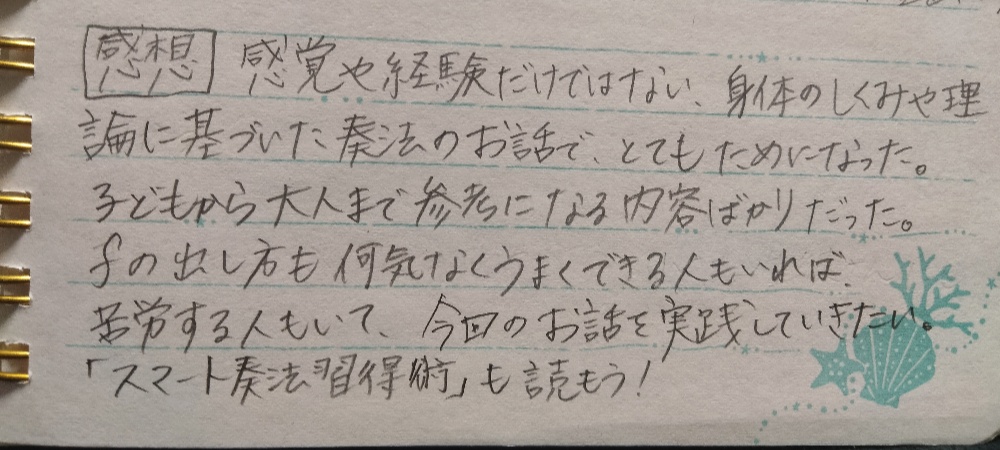 感想 感覚や経験だけではない、身体のしくみや理
論に基づいた奏法のお話で、とてもためになった。
子どもから大人まで参考になる内容ばかりだった。
fの出し方も何気なくうまくできる人もいれば、
苦労する人もいて、今回のお話を実践していきたい。
「スマート奏法習得術」も読もう!